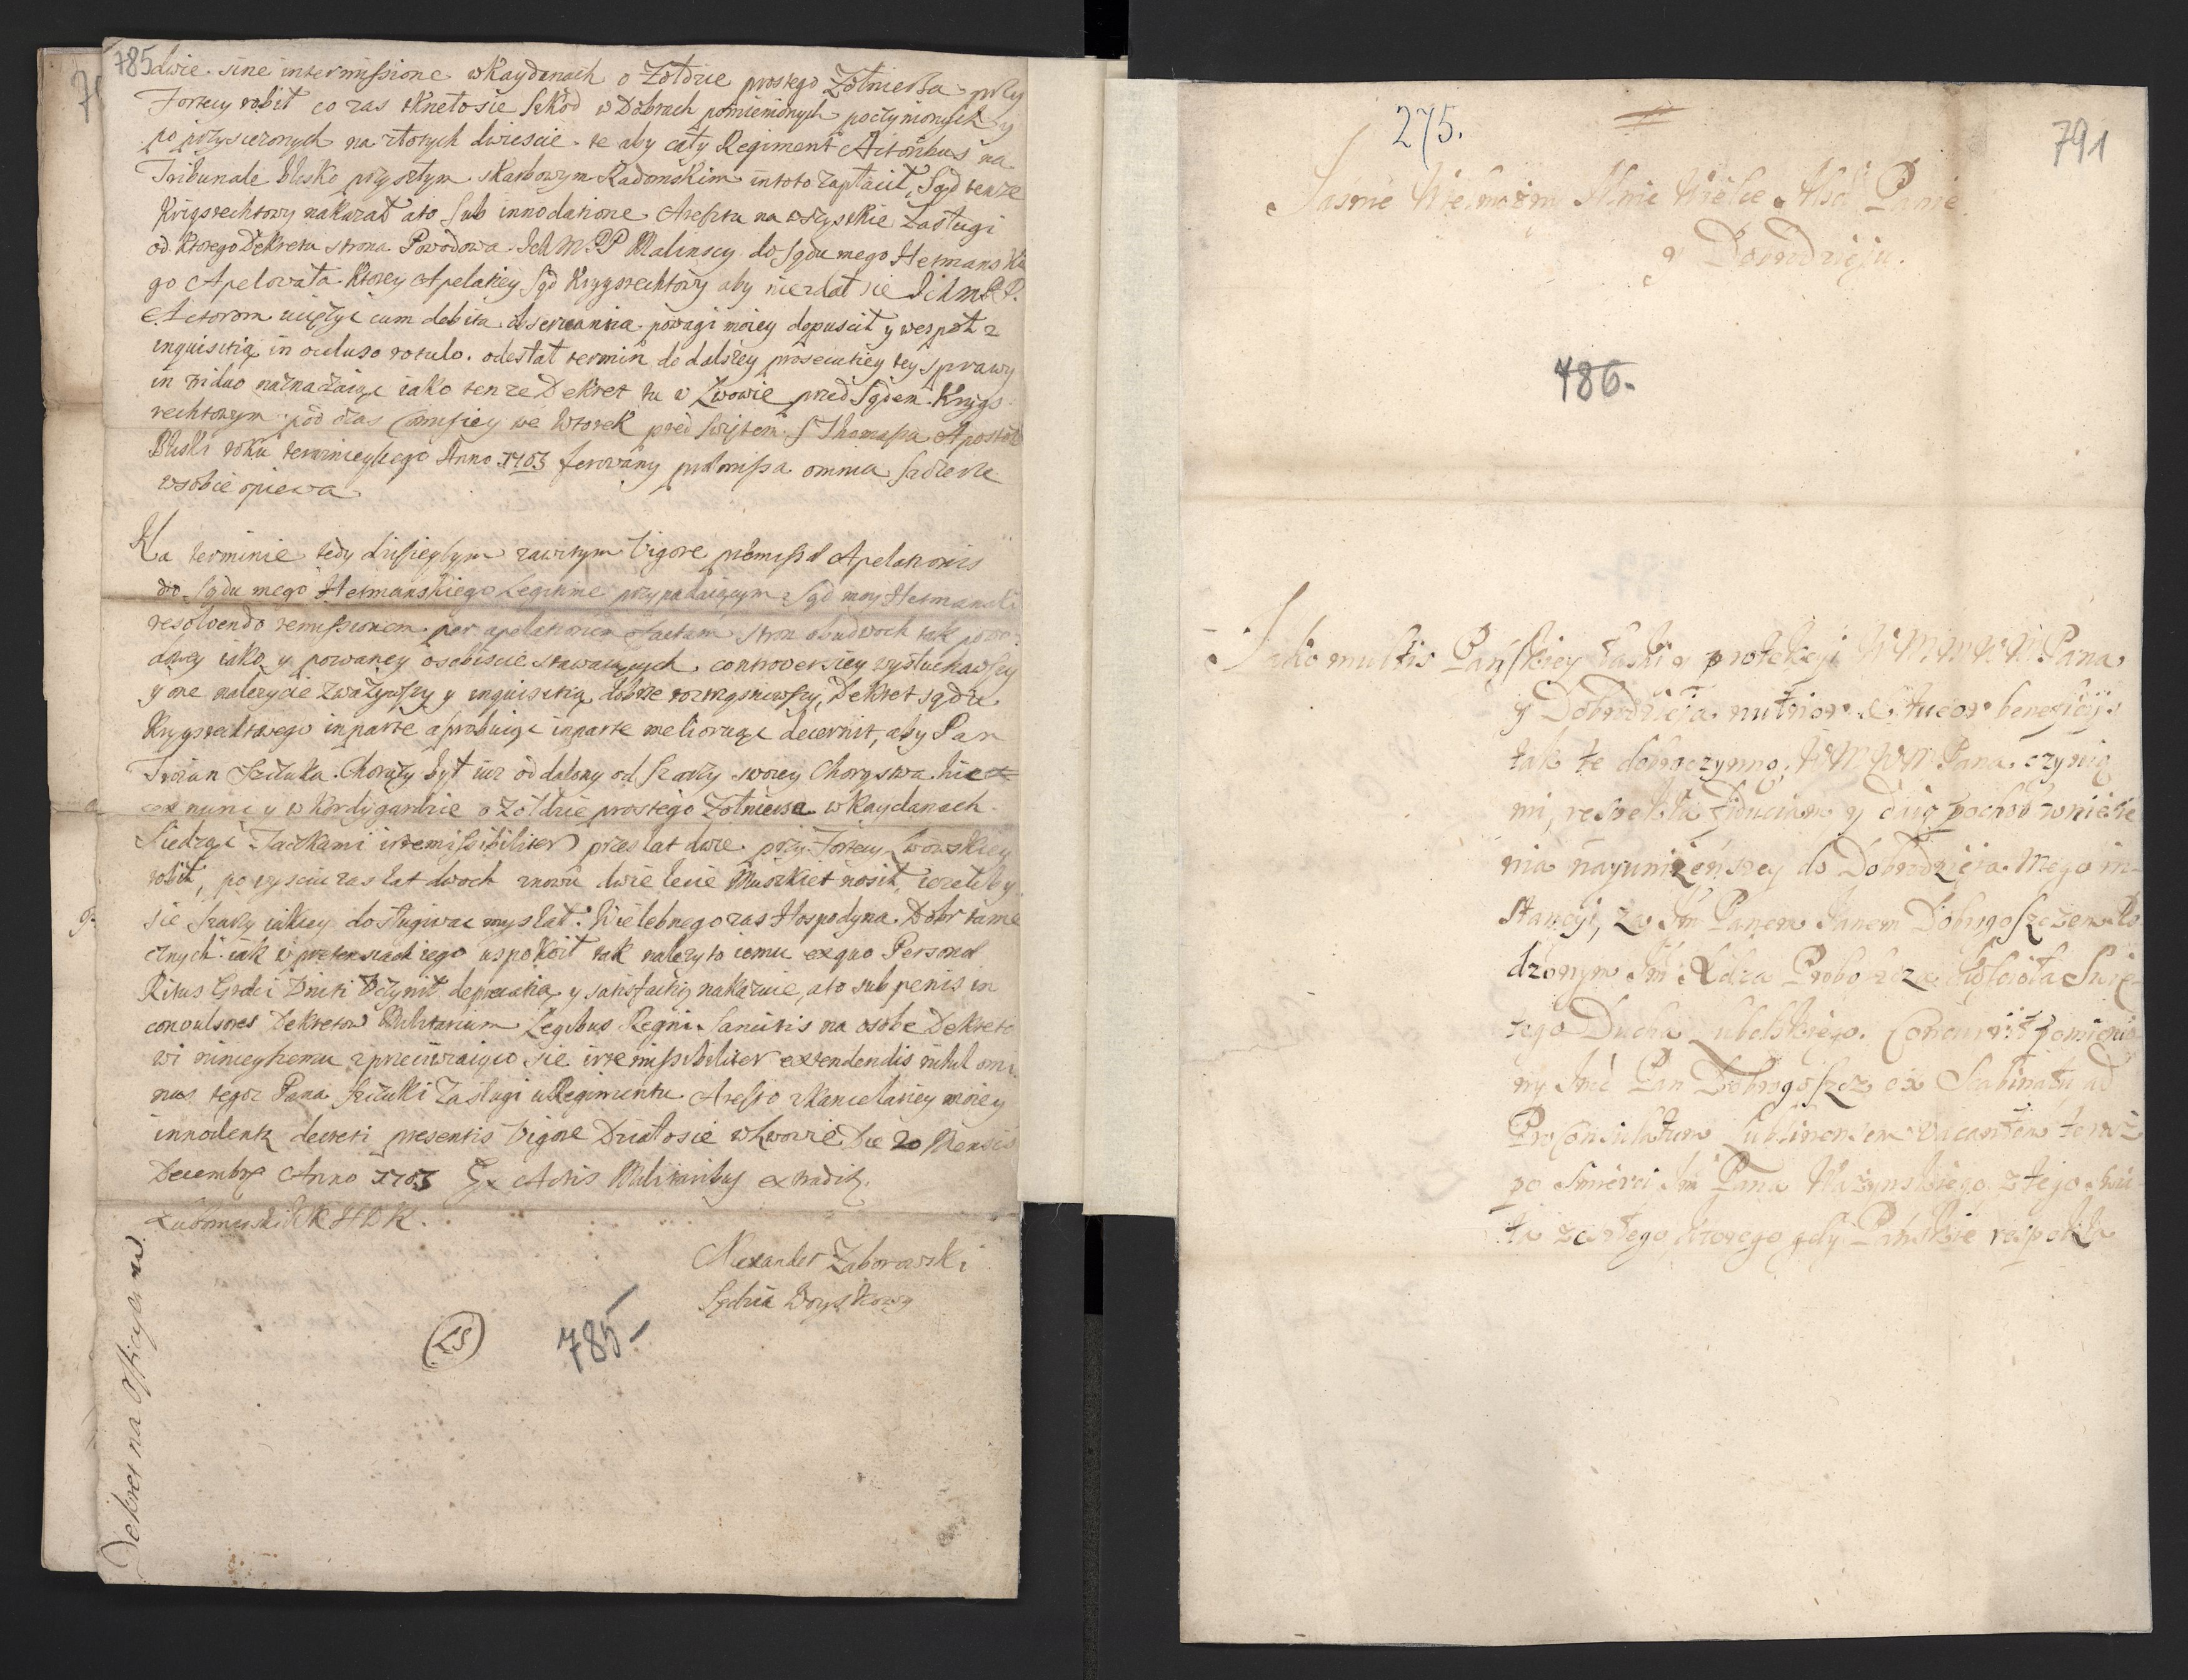 785
dwie. sine intermissione w Kaydanach o Żołdzie prostego Żołniersa przy
Fortecy robił co zas tknetosie Szkod w Dobrach pomienionych poczynionych y
po przysiezonych na złotych dwiescie. te aby cały Regiment Actoribus na
Tribunale blisko przyszłym skarbowym Radomskim intoto zapłacił, Sąd tenze
Krigsrechtowy nakazał ato sub innodatione Aresztu na wszyskie Zasługi
od ktorego Dekretu strona Powodowa. Ich M. PP Malinscy do Sądu mego Hetmanskie
go Apelowała Ktorey Apelatiey Sąd Krygsrechtowy aby niezdał sie Ich M P.P.
Actorom uciążyc cum debita observantia powagi moiey dopuscił y wespoł z
inquisitią in ocluso rotulo. odesłał termin do dalszey prosecutiey tey sprawy
in triduo naznaczaiąc iako tenze Dekret tu w Lwowie przed Sądem Krygs
rechtowym pod czas Comisiey we Wtorek przed Swiętem S Thomasza Apostoła
Bliski roku teraznieyszego Anno 1703 ferowany præmissa omnia szczerze
wsobie opiewa
Na terminie tedy dzisieyszym zawitym Vigore præmissæ Apelationis
do Sądu mego Hetmanskiego Legitime przypadaiącym Sąd moy Hetmanski
resolvendo remissionem per apelationem factam stron obudwoch tak powo
dowey iako y pozwaney osobiscie stawaiących, controversiey wysłuchawszy
y one nalezycie zwazywszy y inquisitią dobrze rozmysniwszy, Dekret sądu
Krygsrechtowego inparte aprobuiąc inparte melioruąc decernit, aby Pan
Trojan Szczuka Chorąży był iuz oddalony od Szarży swoiey Chorąstwa hic
ex nunc y w Kordygardzie o Żołdzie prostego Żołniersa w Kaydanach
Siedząc Taczkami irremissibiliter przez lat dwie przy Fortecy Lwowskiey
robił, po wysciu zas lat dwoch znowu dwie lecie Muszkiet nosił, iezeliby
sie Szarży iakiey dosługiwac myslał. Wielebnego zas Hospodyna Dobr tame
cznych iak w pretensiach iego uspokoił tak należyto iemu ex quo Personæ
Ritus Græci Uniti Uczynił deprecatią y satisfactią nakazuie, ato sub penis in
convulsores Dekretow Militarium Legibus Regni Sancitis na osobe Dekreto
wi ninieyszemu sprzeciwiaiącą sie irremissibiliter extendendis nihil omi
nus tegoz Pana Szczuki Zasługi u Regimentu Areszto z Kancelariey moiey
innodentur decreti presentis Vigore Działosie w Lwowie Die 20 Mensis
Decembrs Anno 1703 Ex Actis Militaribus extradit.
Lubomirski KK HWK.
Alexander Zaborowski
Sędzia Woyskowy
(LS)
785.
Dekret na Officyerów
275.
791
Jasnie Wielmożny Mnie Wielce Mści Panie
y Dobrodzieju.
786.
Jako multis Pańskiey łaski y protekcji W M M W M Pana
y Dobrodzieja nutrior & tueor beneficijs
tak te dobroczynną W M W M Pana czynią
mi, respekta fiduciam y dają pochod wniesie
nia nayuniżeńszey do Dobrodzieja Mego in-
stancyi, za Jm Panem Janem Dobrogoszczem Ro
dzonym Jm Xdza Proboszcza Kościoła Swię-
tego Ducha Lubelskiego. Concurrit pomienio
ny Jmć Pan Dobrogoszcz ex Scabinatu ad
ProConsulatum Lublinensem vacantem teraz
po Smierci Jm Pana Ważynskiego z tego świ
ta zeszłego ktorego gdy Pańskie respekta